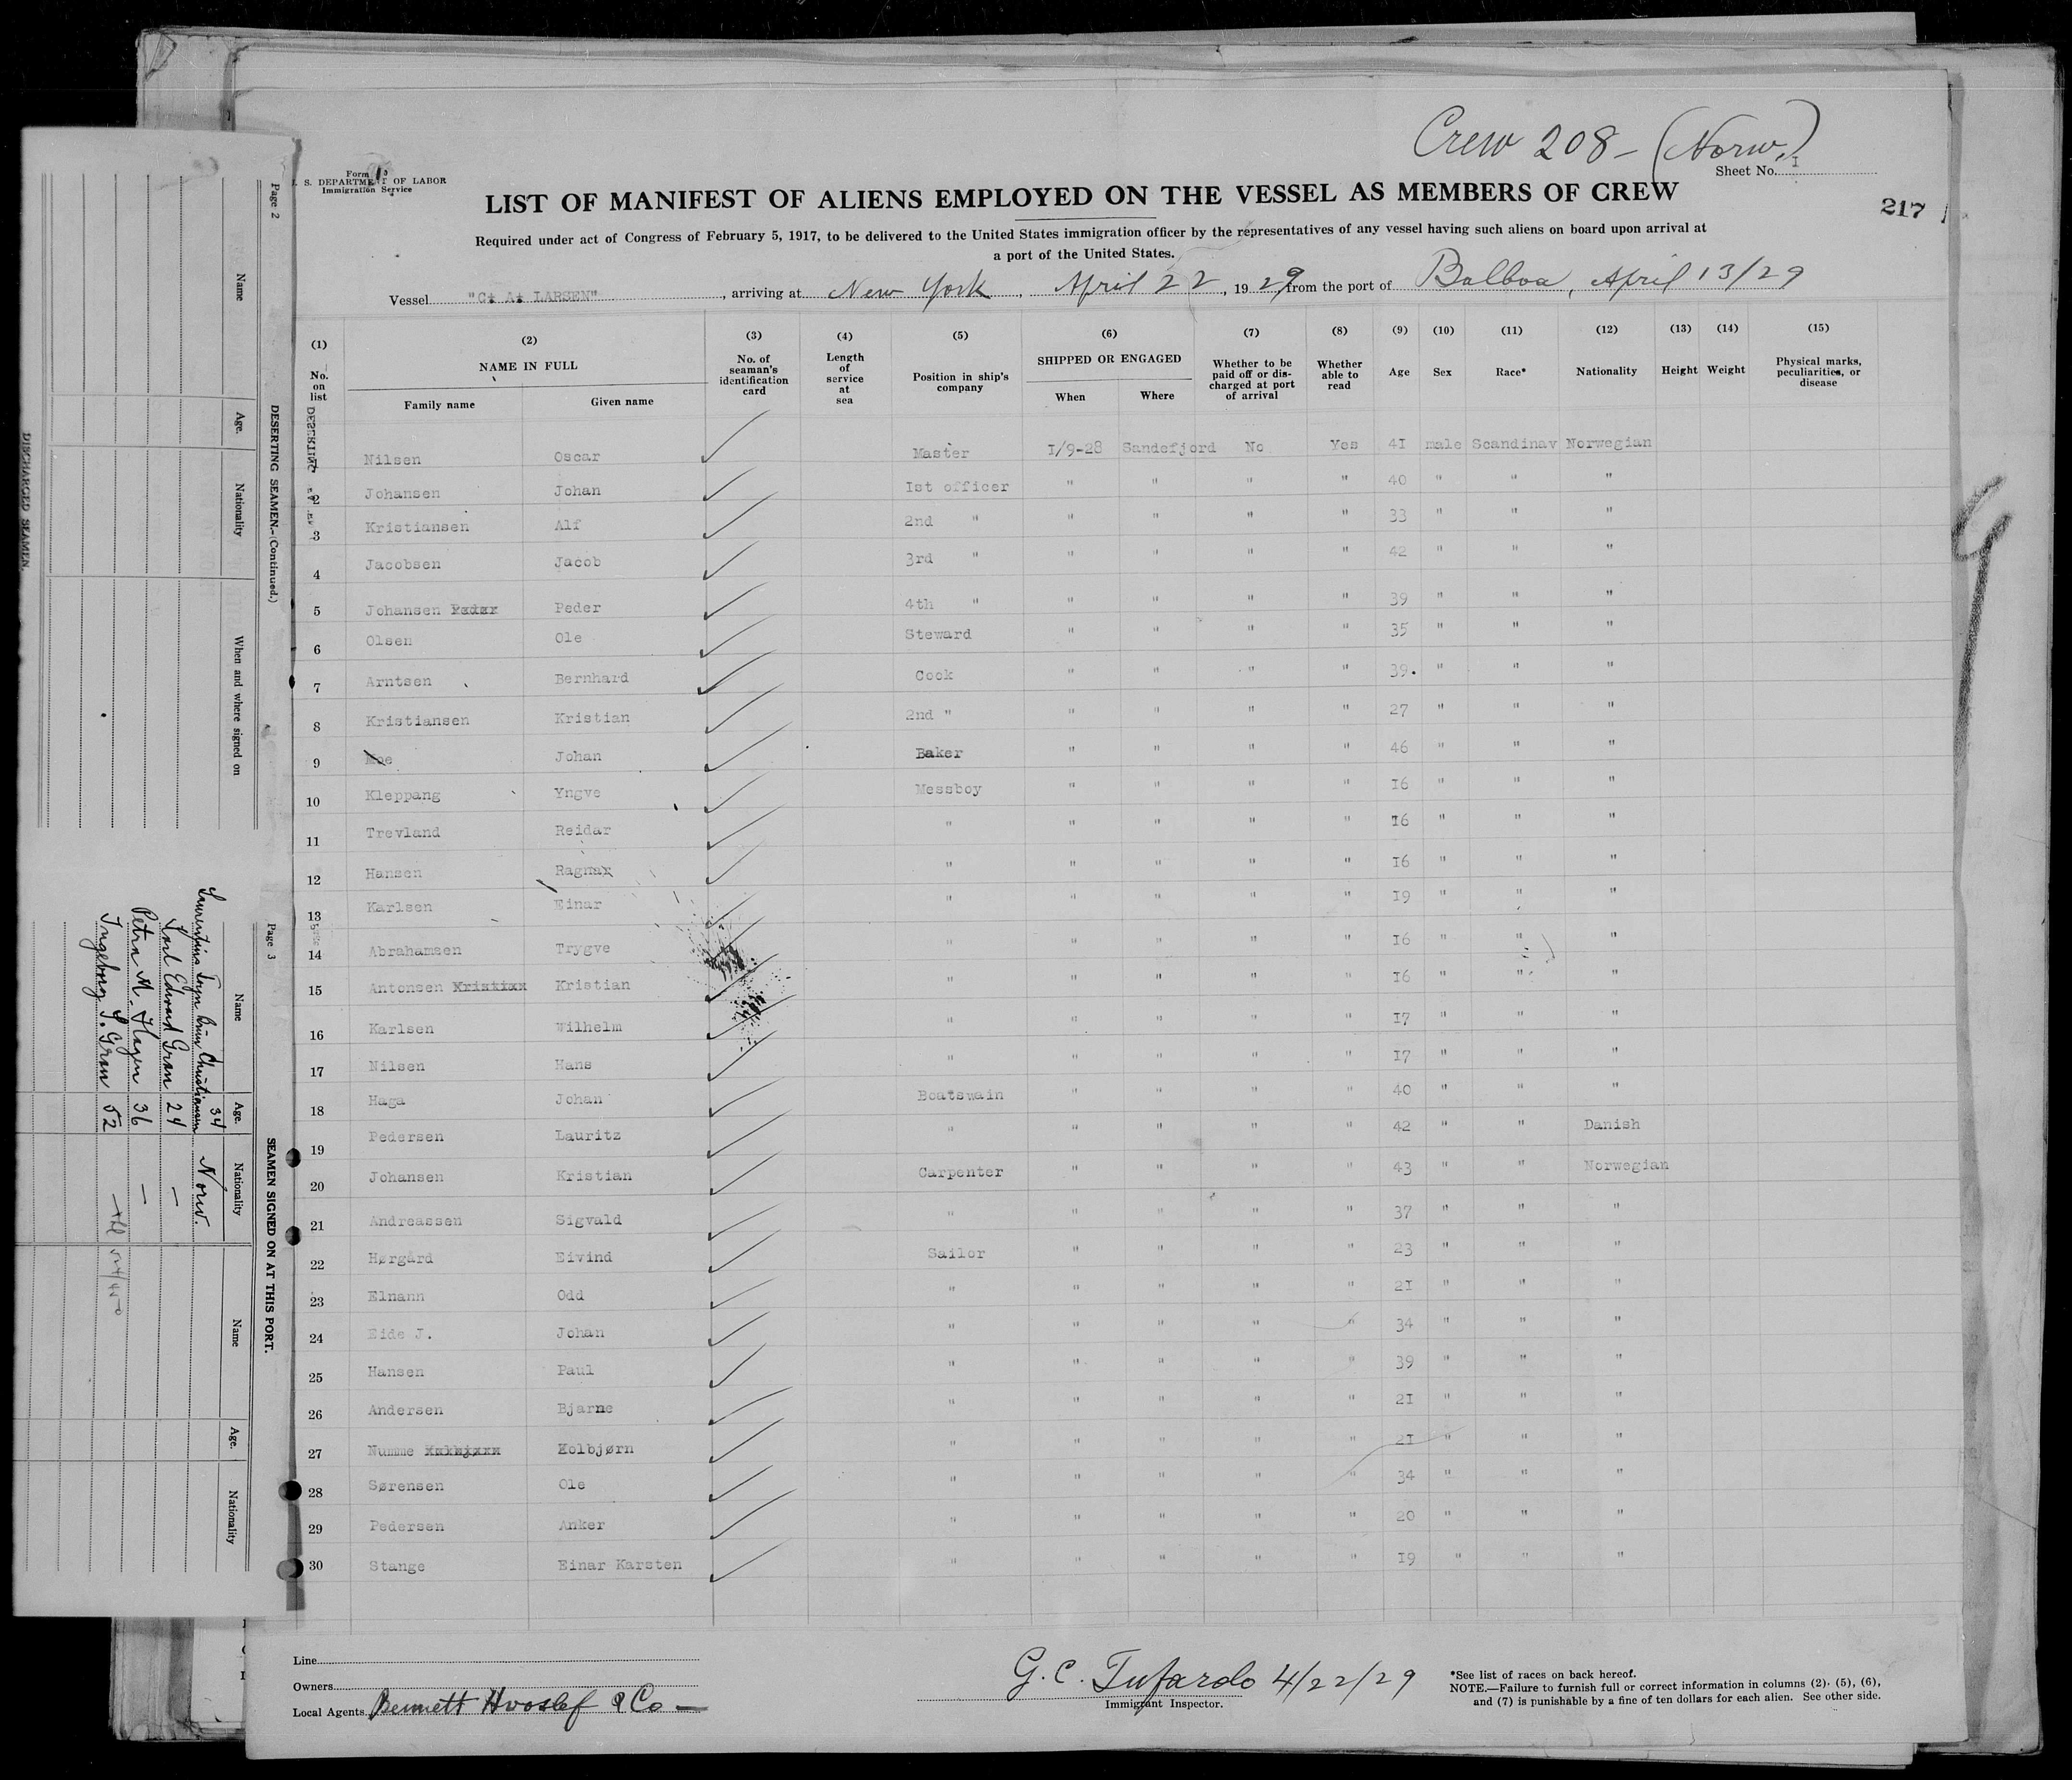 Crew 208 - (Norw.)
Form
U. S. DEPARTMENT OF LABOR
Immigration Service
Sheet No. I
LIST OF MANIFEST OF ALIENS EMPLOYED ON THE VESSEL AS MEMBERS OF CREW
217
Required under act of Congress of February 5, 1917, to be delivered to the United States immigration officer by the representatives of any vessel having such aliens on board upon arrival at
a port of the United States.
Vessel "C. A. LARSEN", arriving at New York, April 22, 1929, from the port of Balboa, April 13/29
(1) (2) (3) (4) (5) (6) (7) (8) (9) (10) (11) (12) (13) (14) (15)
No. on list NAME IN FULL Family name Given name No. of seaman's identification card Length of service at sea Position in ship's company SHIPPED OR ENGAGED When Where Whether to be paid off or discharged at port of arrival Whether able to read Age Sex Race* Nationality Height Weight Physical marks, peculiarities, or disease
1 Nilsen Oscar Master 1/9-28 Sandefjord No Yes 41 male Scandinav Norwegian
2 Johansen Johan Ist officer " " " " 40 " " "
3 Kristiansen Alf 2nd " " " " " 33 " " "
4 Jacobsen Jacob 3rd " " " " " 42 " " "
5 Johansen Peder 4th " " " " " 39 " " "
6 Olsen Ole Steward " " " " 35 " " "
7 Arntsen Bernhard Cook " " " " 39. " " "
8 Kristiansen Kristian 2nd " " " " " 27 " " "
9 Moe Johan Baker " " " " 46 " " "
10 Kleppang Yngve Messboy " " " " 16 " " "
11 Trevland Reidar " " " " " 16 " " "
12 Hansen Ragnar " " " " " 16 " " "
13 Karlsen Einar " " " " " 19 " " "
14 Abrahamsen Trygve " " " " " 16 " " "
15 Antonsen Kristian " " " " " 16 " " "
16 Karlsen Wilhelm " " " " " 17 " " "
17 Nilsen Hans " " " " " 17 " " "
18 Haga Johan Boatswain " " " " 40 " " "
19 Pedersen Lauritz " " " " " 42 " " Danish
20 Johansen Kristian Carpenter " " " " 43 " " Norwegian
21 Andreassen Sigvald " " " " " 37 " " "
22 Hørgård Eivind Sailor " " " " 23 " " "
23 Elnann Odd " " " " " 21 " " "
24 Eide J. Johan " " " " " 34 " " "
25 Hansen Paul " " " " " 39 " " "
26 Andersen Bjarne " " " " " 21 " " "
27 Numme Kolbjørn " " " " " 21 " " "
28 Sørensen Ole " " " " " 34 " " "
29 Pedersen Anker " " " " " 20 " " "
30 Stange Einar Karsten " " " " " 19 " " "
Line
Owners
Local Agents Bennett Hvoslef & Co —
G. C. Tufardo 4/22/29
Immigrant Inspector.
*See list of races on back hereof.
NOTE.—Failure to furnish full or correct information in columns (2), (5), (6),
and (7) is punishable by a fine of ten dollars for each alien. See other side.
Page 2
DESERTING SEAMEN.—(Continued.)
Name Age. Nationality When and where signed on
DISCHARGED SEAMEN.
Page 3
SEAMEN SIGNED ON AT THIS PORT.
Name Age. Nationality Name Age. Nationality
Christiansen 34 Norw.
Karl Edvard Gran 24 —
Petra M. Hagen 36 —
Ingeborg S. Gran 52